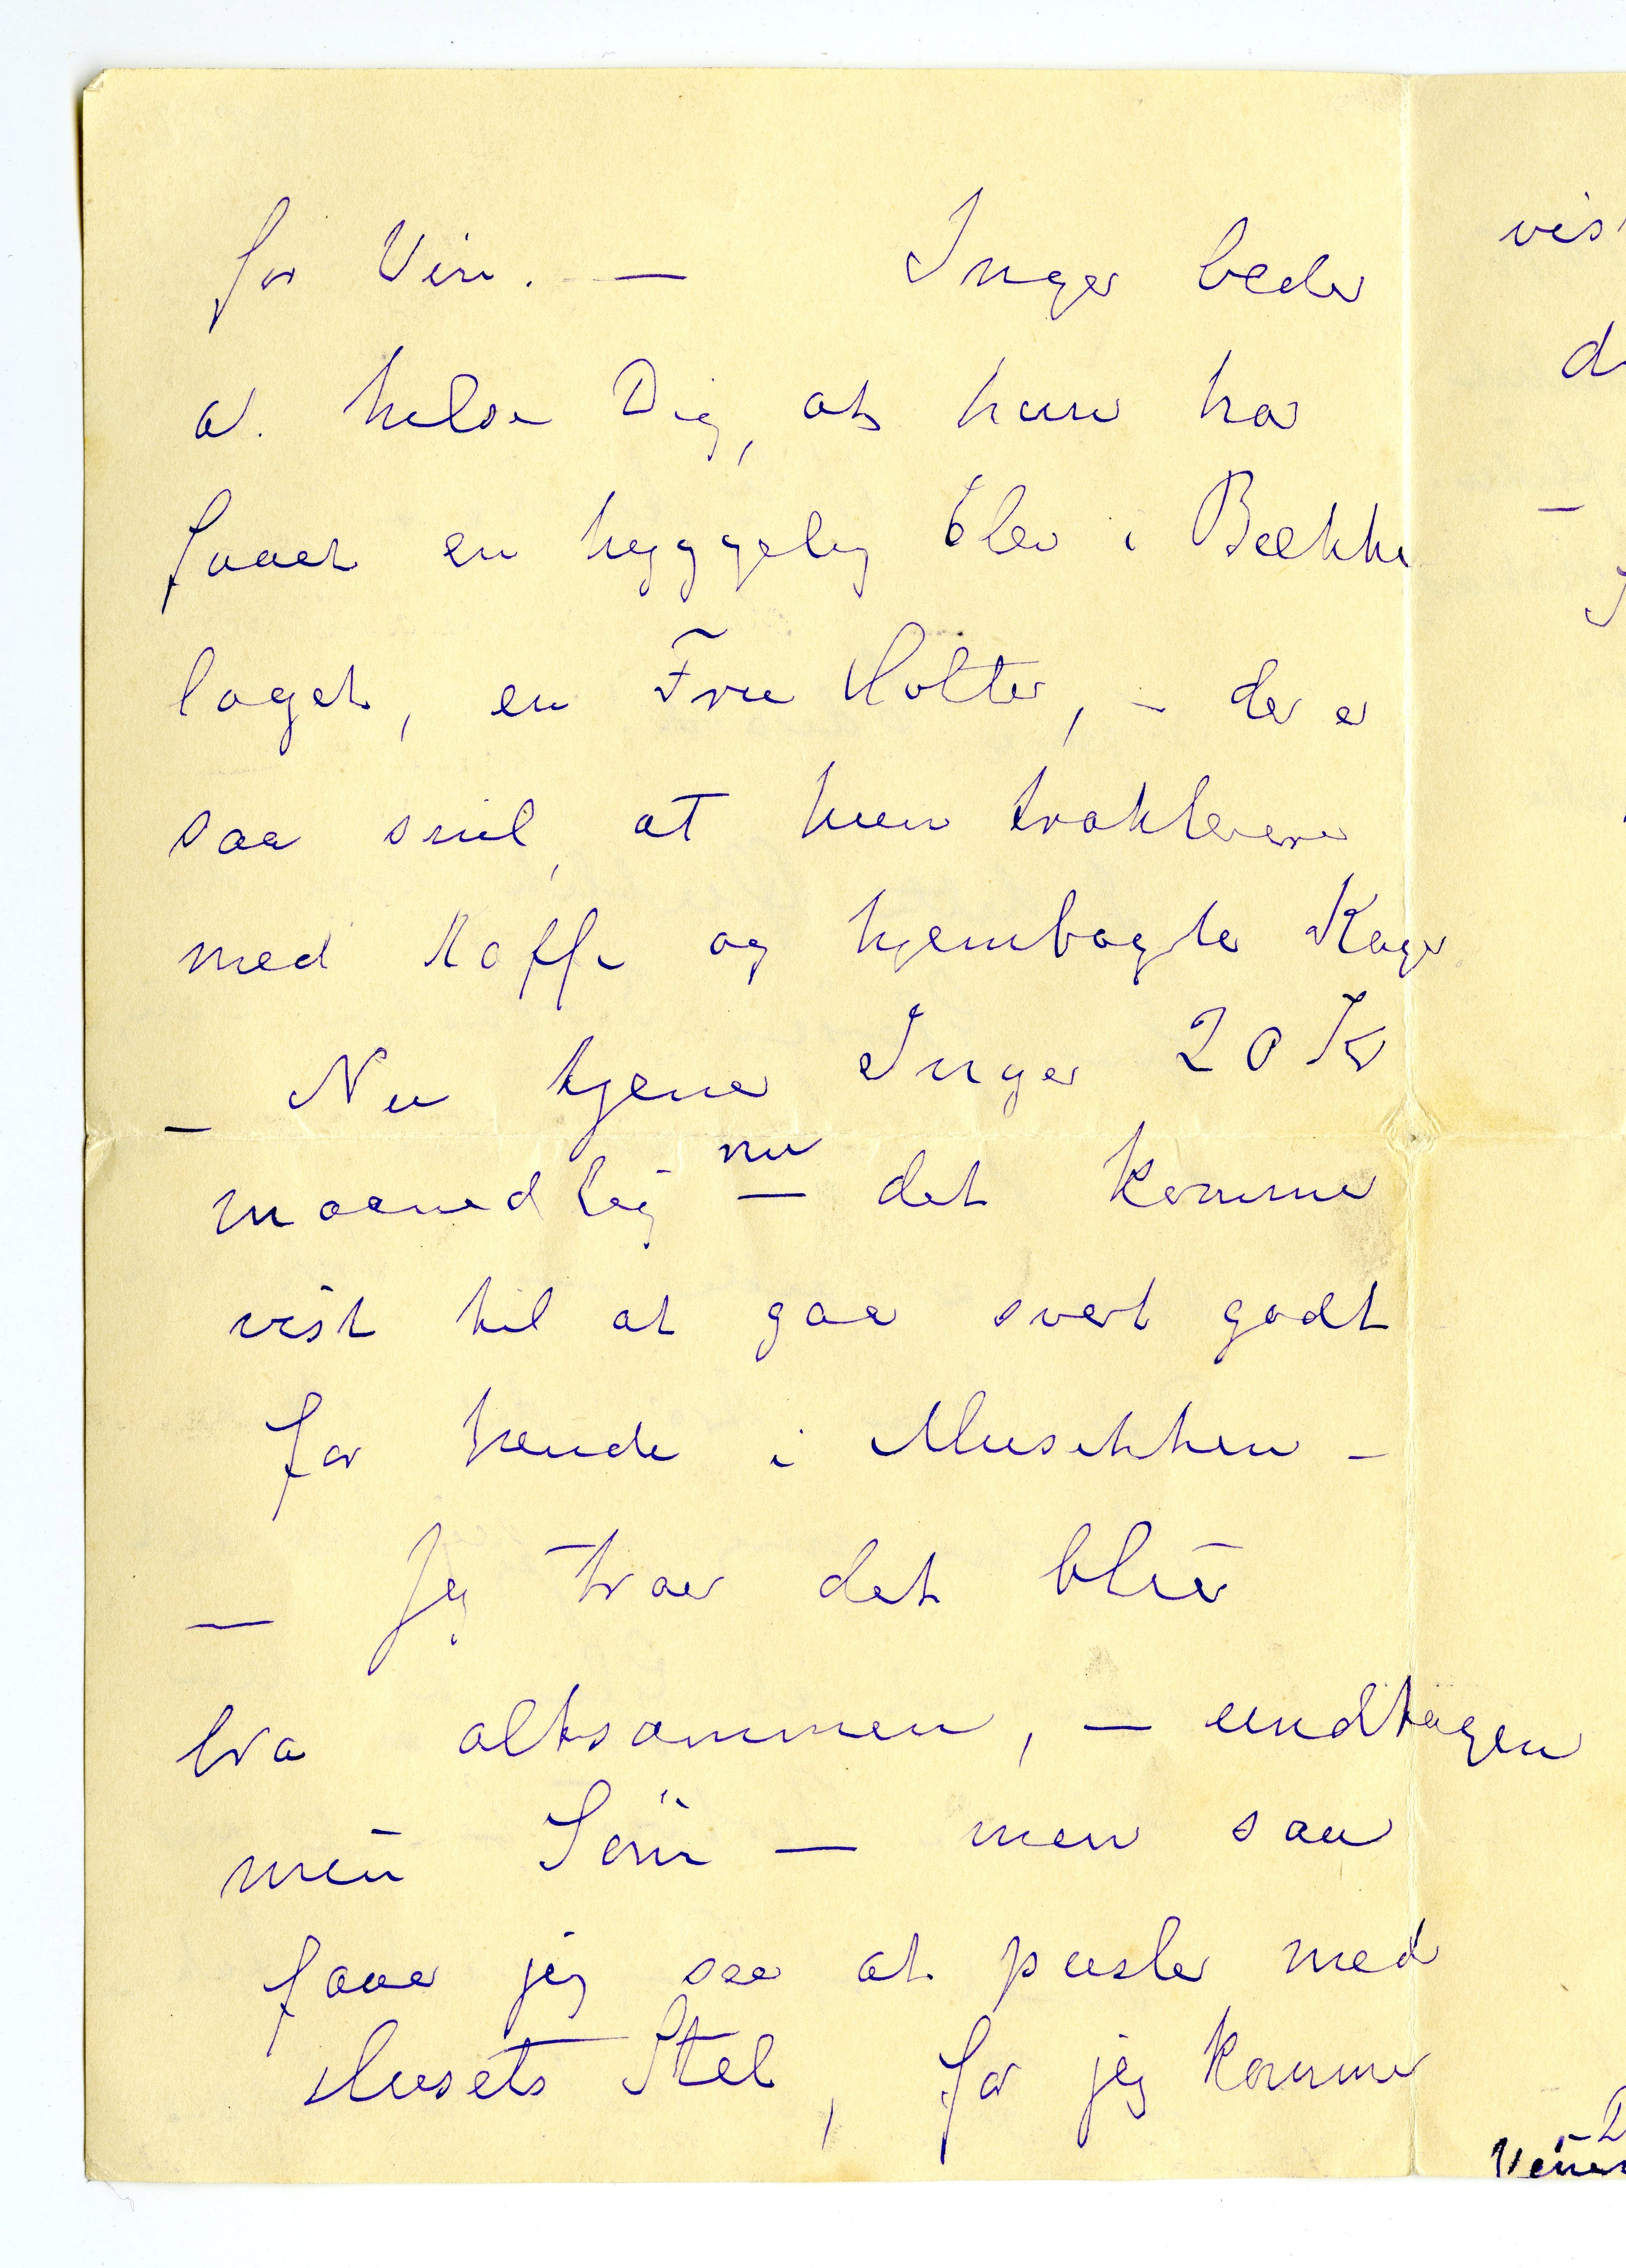 for Vin. — Inger beder
at hilse Dig, at hun har
faaet en hyggelig Elev i Bække
laget, en Fru Holter, – der er
saa snil, at hun trakterer
med Kaffe og hjembagte Kager
– Nu tjener Inger 20 Kr
maanedlig nu — det kommer
vist til at gaa svært godt
for hende i Musikken –
— Jeg tror det blir
bra altsammen, — undtagen
min Søn — men saa
faaer jeg saa at pusle med
Husets Stel, for jeg kommer
vis
d